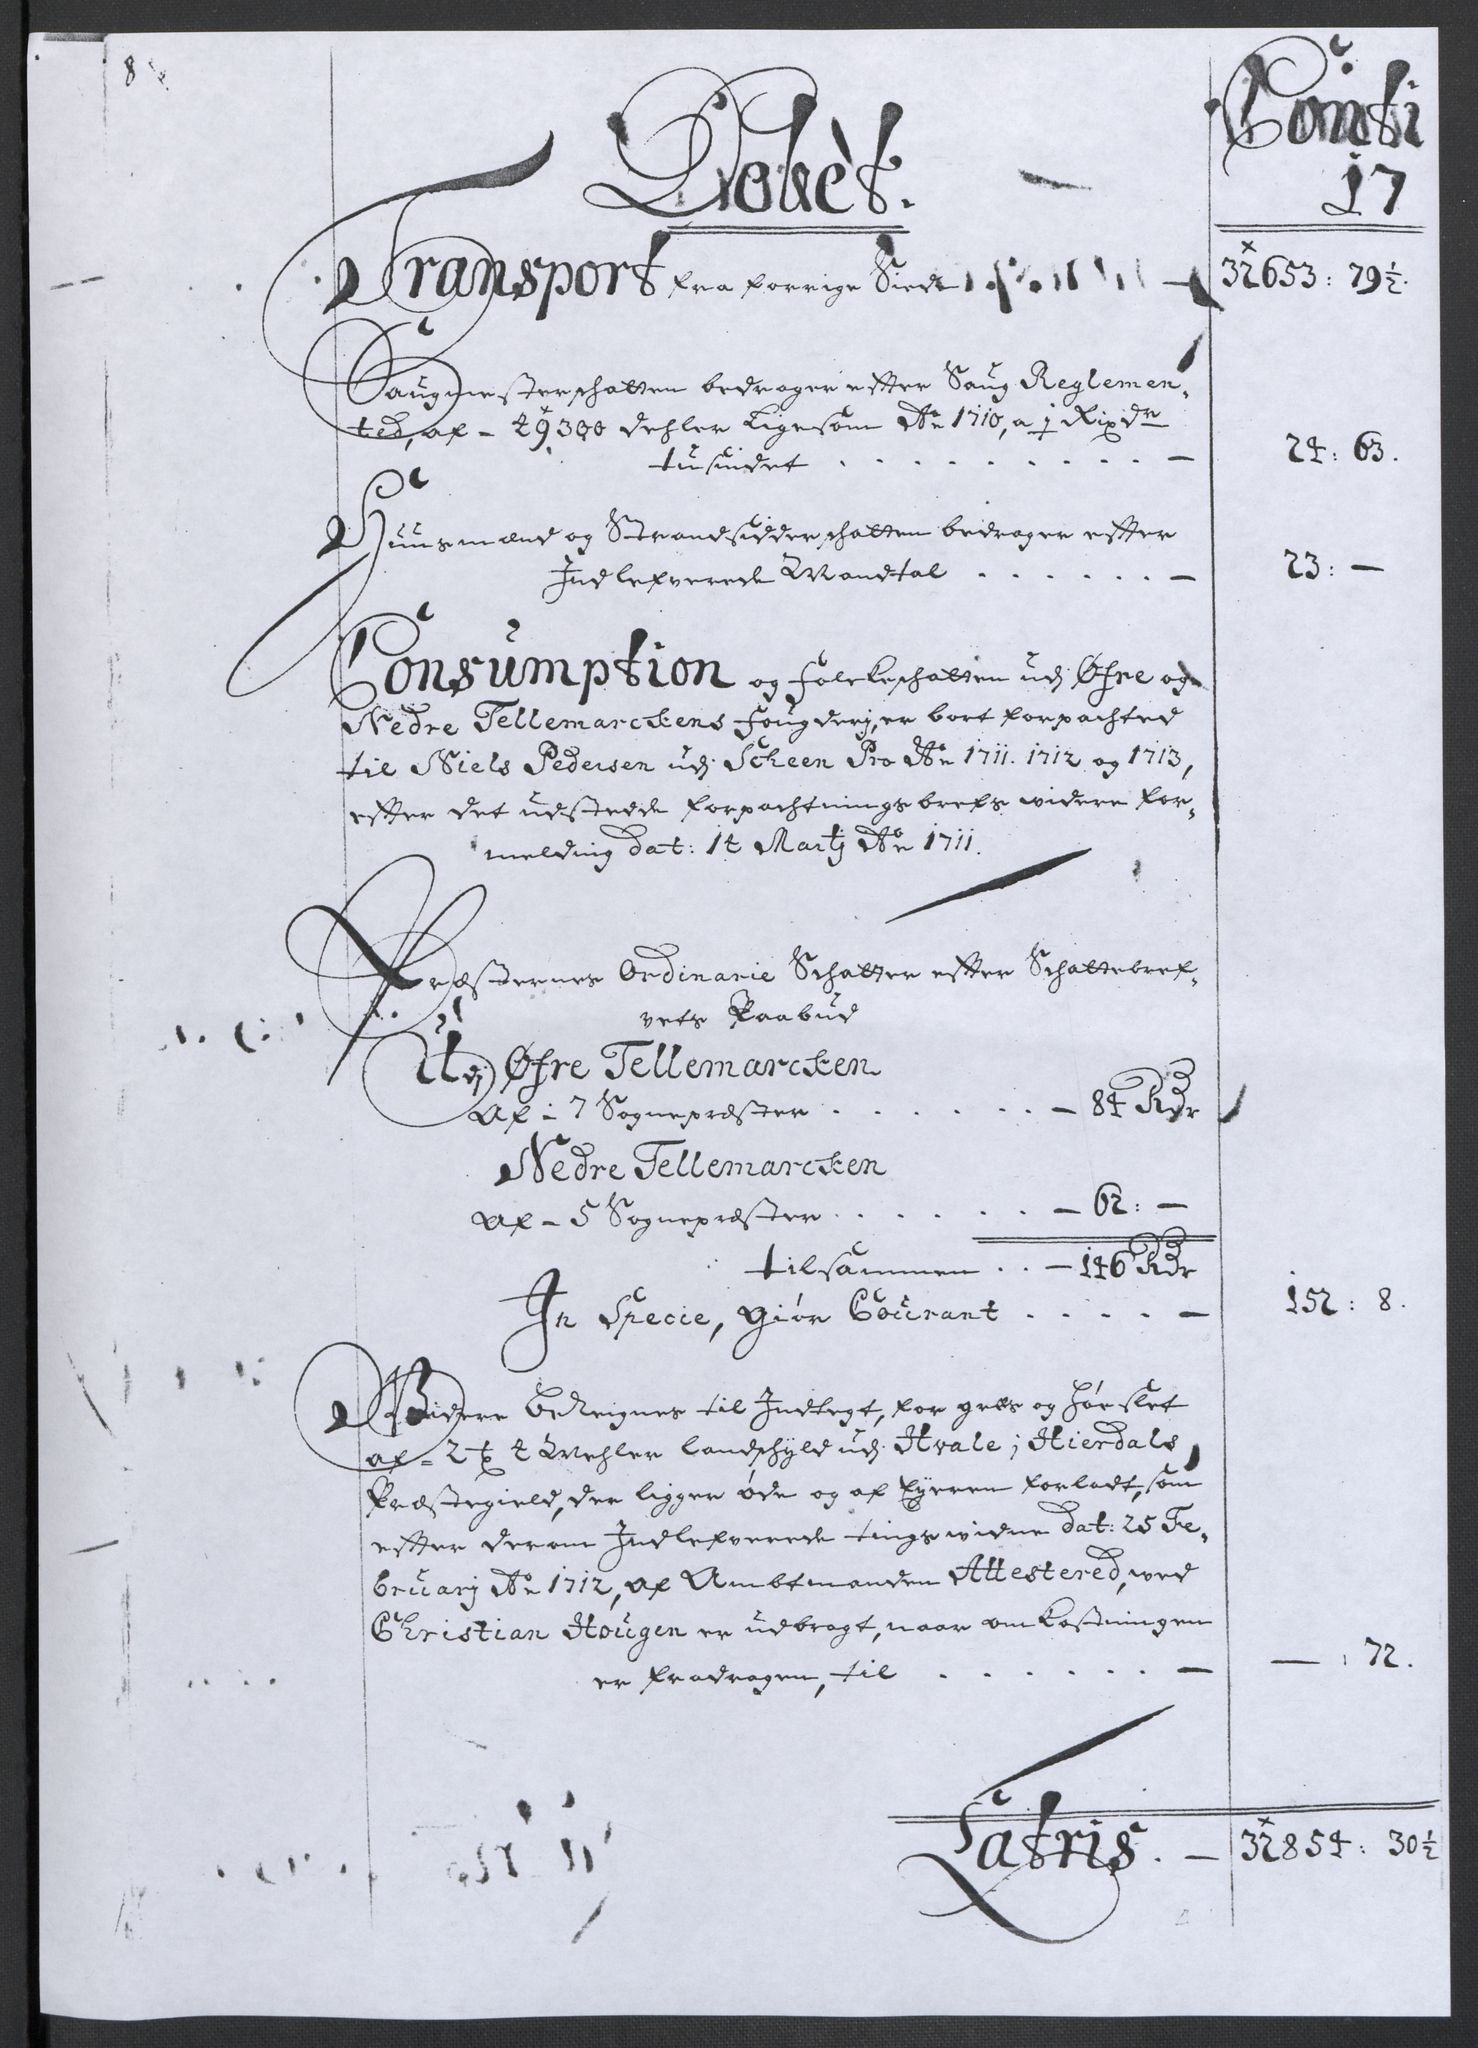 8
Conti
17
Debèt.
Transport fra forrige Siede — 32653: 79½.
Saugmesterschatten bedrager efter Saug Reglemen-
ted, af - 29300 dehler ligesom Ao 1710, a 1 Rixdr
tusindet . . . . . . . . . — 24: 63.
Huusmænd og Strandsidderschatten bedrager efter
Indlefverede Mandtal . . . . . . — 23: —
Consumption og folckeschatten udj Øfre og
Nedre Tellemarckens fougderj, er bort forpachted
til Niels Pedersen udj Scheen Pro Ao 1711. 1712 og 1713,
efter det udstedde forpachtningsbrefs widere for-
melding dat: 14 Martj Ao 1711.
Præsternes Ordinarie Schatter efter Schattebref-
vets Paabud
Udj Øfre Tellemarcken
af - 7 Sognepræster . . . . . . — 84 Rdr
Nedre Tellemarcken
af - 5 Sognepræster . . . . . . — 62: —
tilsammen . . — 146 Rdr
In Specie, giör Courant . . . . . — 152: 8.
Widere beregnes til Indtegt, for græs og høe slet
af - 2 landschyld udj Hvale i Hierdals
Præstegield, der ligger øde og af Eyeren forladt, som
efter derom Indlefverede tingswidne dat: 25 Fe-
bruarij Ao 1712, af Ambtmanden Attestered, wed
Christian Hougen er udbragt, naar omkostningen
er fradragen, til . . . . . . — — : 72.
Latris. — 32854: 30½